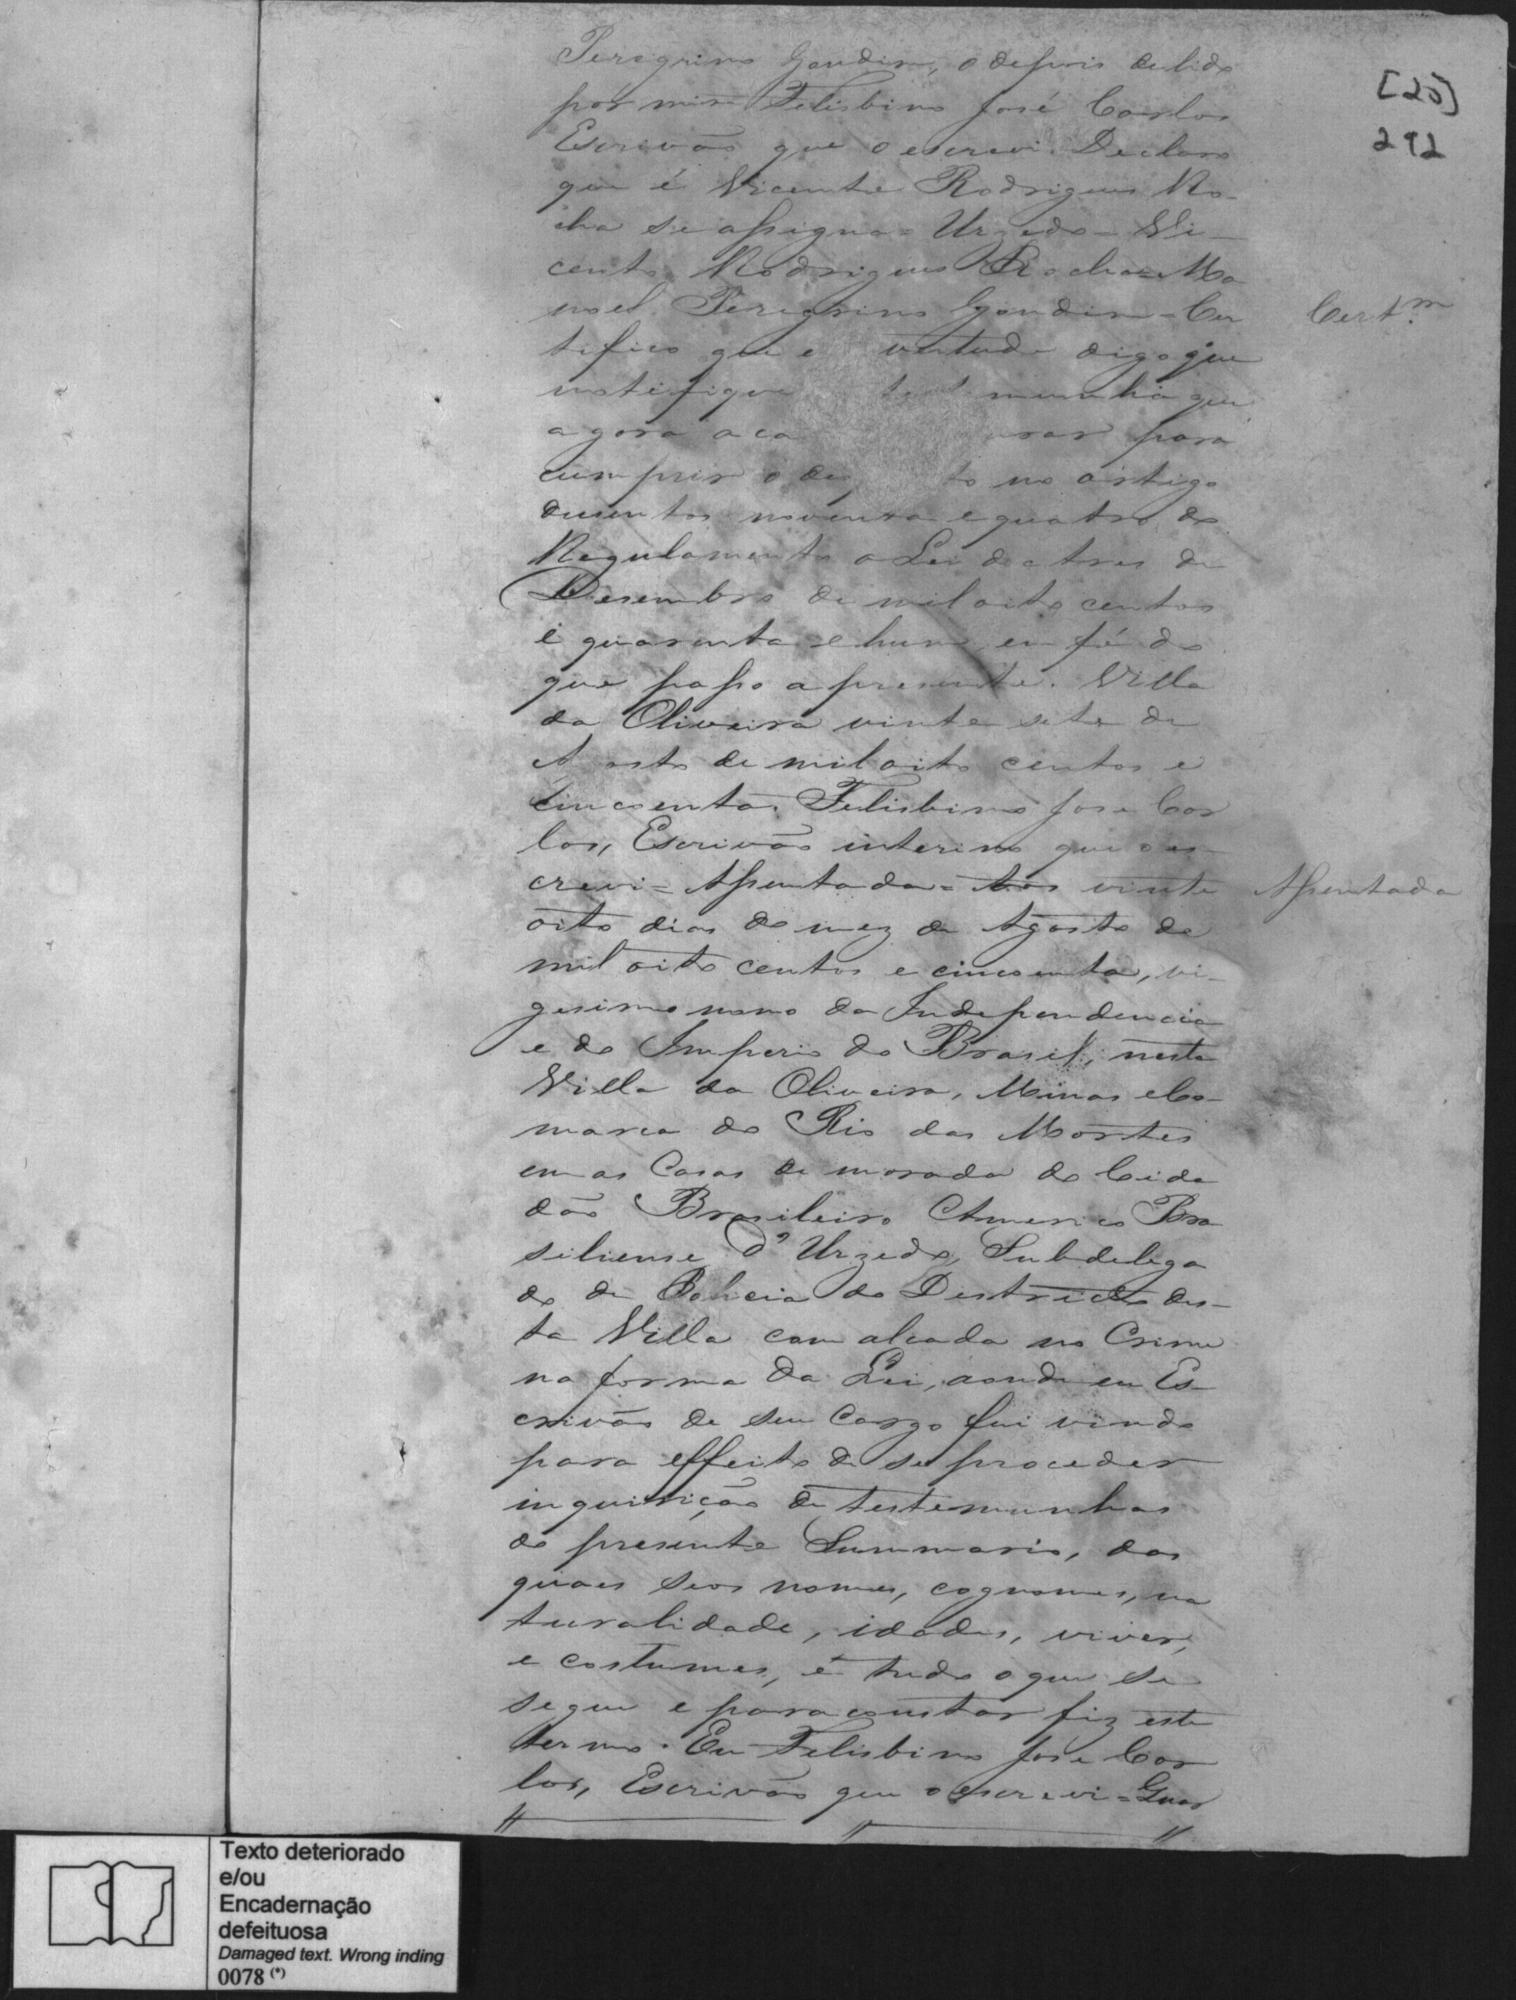 Peregrino Gondim, o depois de lido
por mim Felisbino José Carlos
Escrivão que o escrevi. Declaro
que é Vicente Rodrigues Ro-
cha se assigna = Urzedo = Vi-
cente Rodrigues Rocha = Ma
noel Peregrino Gondim = Cer
tifico que e vertude digo que
notifique munha que
agora aca urar para
cumprir o dis to no artigo
dusentos noventa e quatro do
Regulamento a Lei de tres de
Desembro de mil oito centos
e quarenta e hum, em fé do
que passo a presente. Villa
da Oliveira vinte sete de
A osto de mil oito centos e
cincoenta. Felisbino Jose Car
los, Escrivão interino que o es-
crevi = Assentada = Aos vinte
oito dias do mez de Agosto de
mil oito centos e cincoenta, vi-
gesimo nono da Independencia
e do Imperio do Brasil, nesta
Villa da Oliveira, Minas e Co-
marca do Rio das Mortes
em as Casas de morada do Cida
dão Brasileiro Americo Bra
siliense d'Urzedo, Subdelega
do de Policia do Districto des-
ta Villa com alcada no Crime
na forma da Lei, aonde eu Es-
crivão de seu Cargo fui vindo
para effeito de se proceder
inquirição de testemunhas
do presente Summario, das
quaes seos nomes, cognomes, na
turalidade, idades, viver,
e costumes, é tudo o que se
segue e para constar fiz este
termo. Eu Felisbino Jose Car
los, Escrivão que o escrevi = Guar
[25]
292
Certm
Assentada
Texto deteriorado
e/ou
Encadernação
defeituosa
Damaged text. Wrong inding
0078 (*)